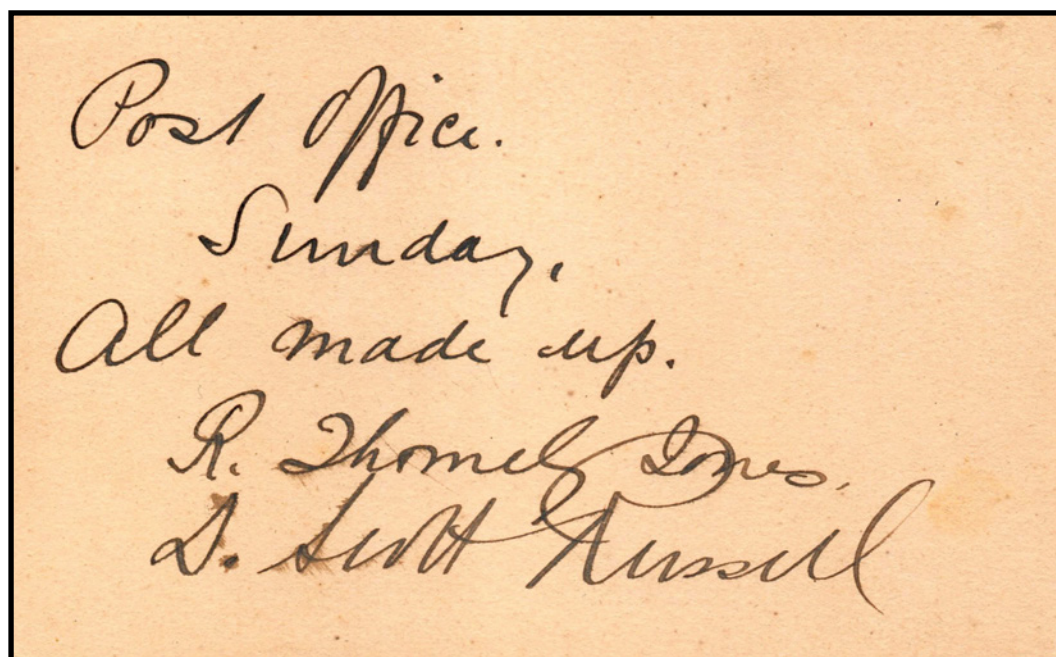 Post Office.
Sunday.
All made up.
R. Thornely Jones.
D. Scott Russell